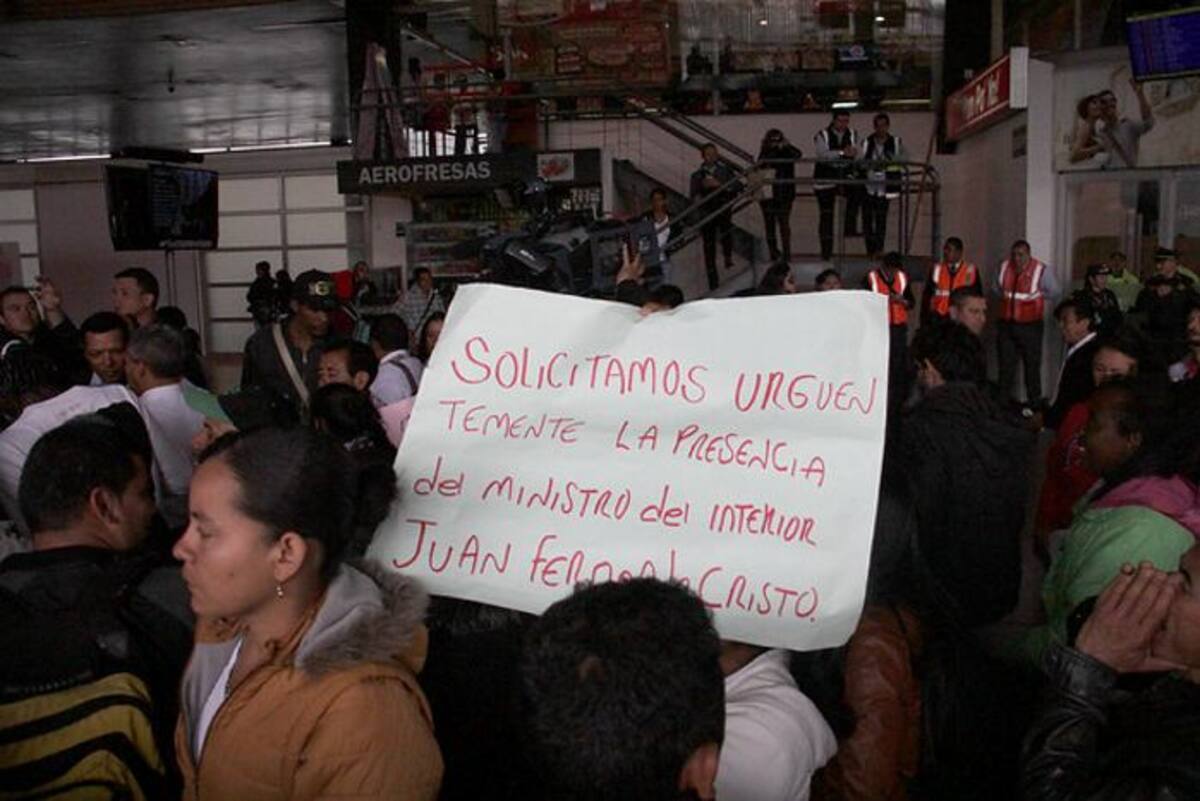 AEROFRESAS
SOLICITAMOS URGUEN
TEMENTE LA PRESENCIA
del MINISTRO del INTERIOR
JUAN CRISTO.